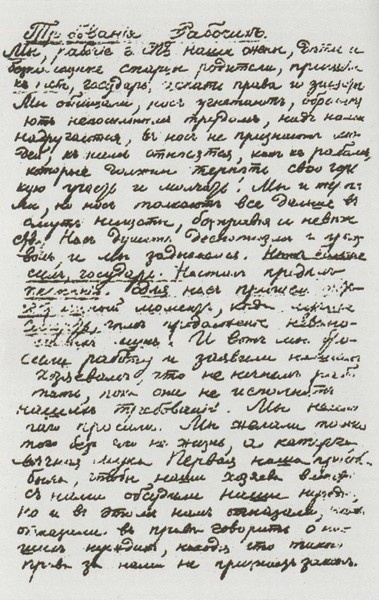 Требованія Рабочихъ.
Мы, рабочіе наши жены, дѣти и
старцы родители, пришли
государь, искати правды и защиты
Мы обнищали, насъ угнетаютъ, обременя
ютъ непосильнымъ трудомъ, надъ нами
надругаются, въ насъ не признаютъ лю
дей, къ намъ относятся, какъ къ рабамъ,
которые должны терпѣть свою горь
кую участь и молчать! Мы и терпѣ
ли, но насъ толкаютъ все дальше въ
омутъ нищеты, безправія и невѣже
ства! Насъ душитъ деспотизмъ и произ
волъ, и мы задыхаемся. Нѣтъ больше
силъ, государь. Насталъ предѣлъ
терпѣнію. Для насъ пришелъ
моментъ, когда
продолженіе невыно
мукъ! И вотъ мы бро
сили работу и заявили нашимъ
хозяевамъ, что не начнемъ рабо
тать, пока они не исполнятъ
нашихъ требованій. Мы немно
гаго просили. Мы желали только
того безъ чего не жизнь, а каторга
вѣчная мука Первая наша просьба
была, чтобы наши хозяева вмѣстѣ
съ нами обсудили наши нужды,
Но и въ этомъ намъ отказали,
отказали въ правѣ говорить о на
шихъ нуждахъ, находя что такого
права за нами не признаетъ законъ.